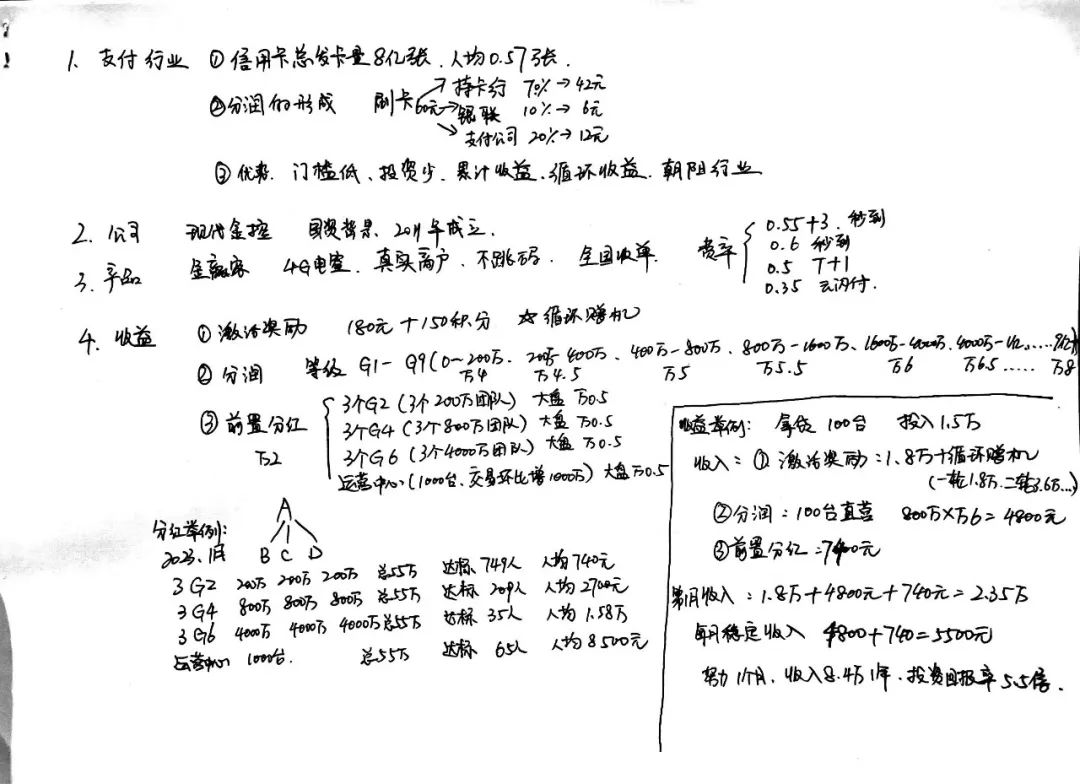 1. 支付行业 ① 信用卡总发卡量8亿张、人均0.57张.
② 分润的形成 刷卡60元 → 持卡行 70% → 42元
→ 银联 10% → 6元
→ 支付公司 20% → 12元
③ 优势. 门槛低、投资少、累计收益、循环收益、朝阳行业
2. 公司 现代金控 国资背景、2011年成立.
3. 产品 金融家 4G电签、真实商户、不跳码、全国收单 费率
0.55+3 秒到
0.6 秒到
0.5 T+1
0.35 云闪付.
4. 收益 ① 激活奖励 180元+150积分 ☆循环赠机
② 分润 等级 G1-G9(0~200万、200万-400万、400万-800万、800万-1600万、1600万-4000万、4000万-1亿、……9亿)
万4 万4.5 万5 万5.5 万6 万6.5 …… 万8
③ 前置分红 万2
3个G2 (3个200万团队) 大盘 万0.5
3个G4 (3个800万团队) 大盘 万0.5
3个G6 (3个4000万团队) 大盘 万0.5
运营中心 (1000台、交易环比增1000万) 大盘万0.5
分红举例:
A
2023.1月 B C D
3G2 200万 200万 200万 总55万 达标 749人 人均740元
3G4 800万 800万 800万 总55万 达标 209人 人均2700元
3G6 4000万 4000万 4000万 总55万 达标 35人 人均1.58万
运营中心 1000台. 总55万 达标 65人 人均8500元
收益举例: 拿货100台 投入1.5万
收入: ① 激活奖励=1.8万+循环赠机
(一轮1.8万、二轮3.6万...)
② 分润: 100台直营 800万×万6=4800元
③ 前置分红=740元
月收入=1.8万+4800元+740元=2.35万
每月稳定收入 4800+740=5500元
努力1个月、收入8.4万1年、投资回报率5.5倍.